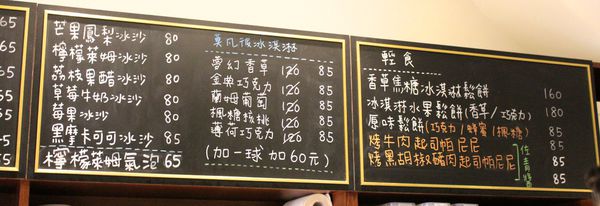 65
65
芒果鳳梨冰沙 80
檸檬萊姆冰沙 80
荔枝果醋冰沙 80
草莓牛奶冰沙 80
莓果冰沙 80
黑摩卡可可冰沙 85
檸檬萊姆氣泡 65
莫凡彼冰淇淋
夢幻香草 120 85
金典巧克力 120 85
蘭姆葡萄 120 85
楓糖核桃 120 85
薄荷巧克力 120 85
(加一球 加60元)
輕食
香草焦糖冰淇淋鬆餅 160
冰淇淋水果鬆餅(香草/巧克力) 180
原味鬆餅(巧克力/蜂蜜/楓糖) 80
烤牛肉起司帕尼尼
烤黑胡椒雞肉起司帕尼尼
佐青醬
85
85